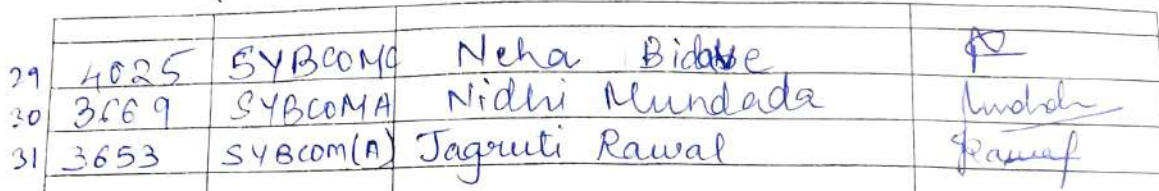 29 4025 SYBCOMC Neha Bidave
30 3669 SYBCOMA Nidhi Mundada
31 3653 SYBCOM(A) Jagruti Rawal Rawal